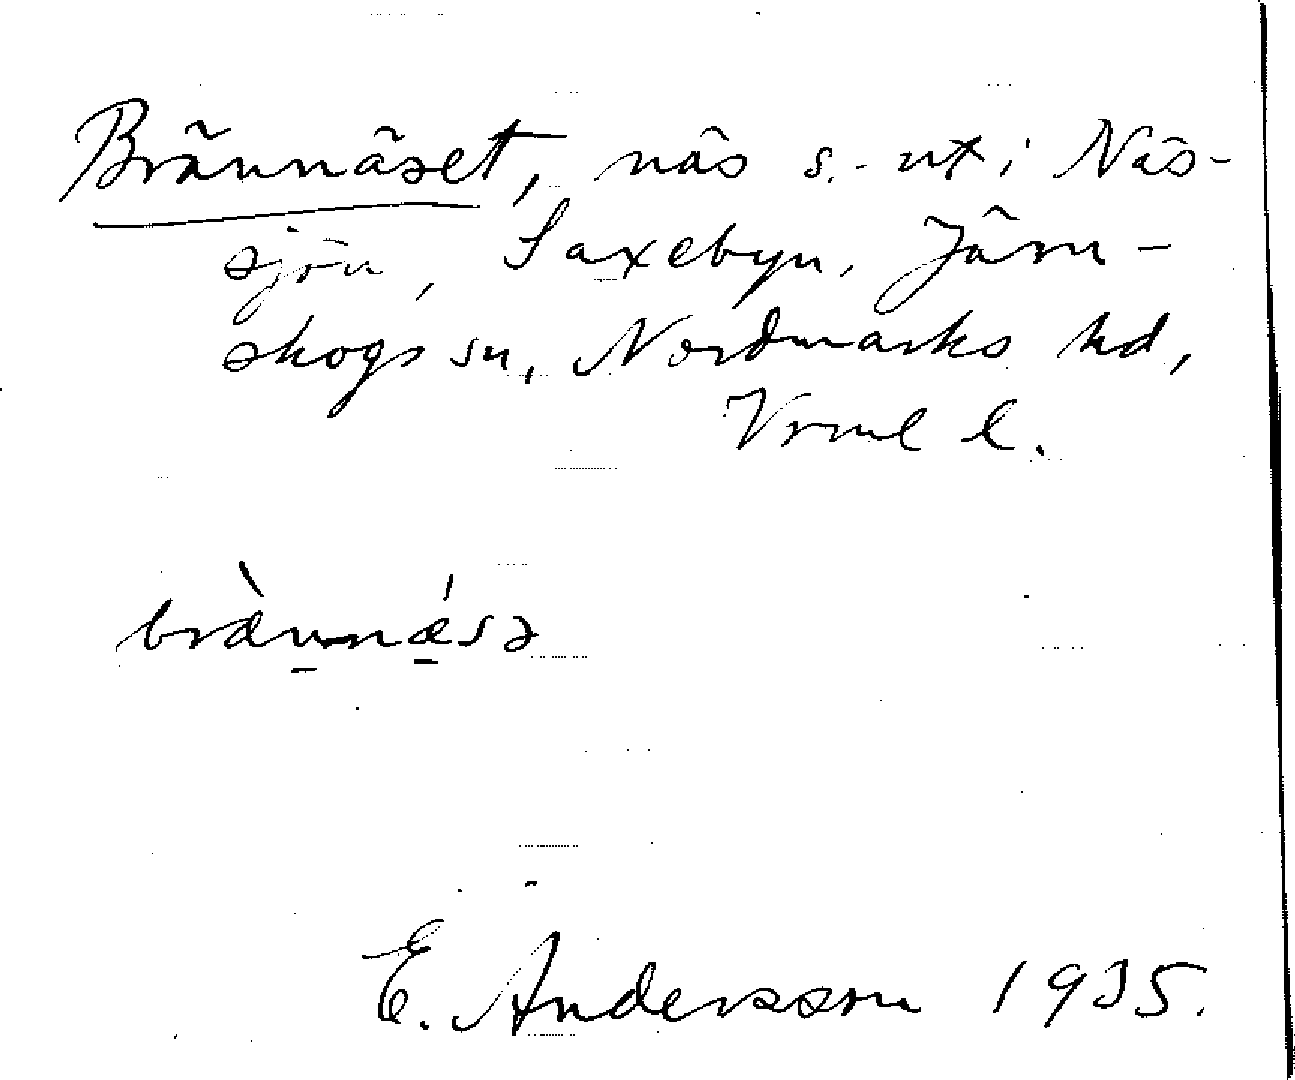 Brännäset, näs s. ut i Näs-
sjön, Saxebyn, Järn-
skogs sn, Nordmarks hd,
Vrml l.
brànnǽsə
E. Andersson 1935.